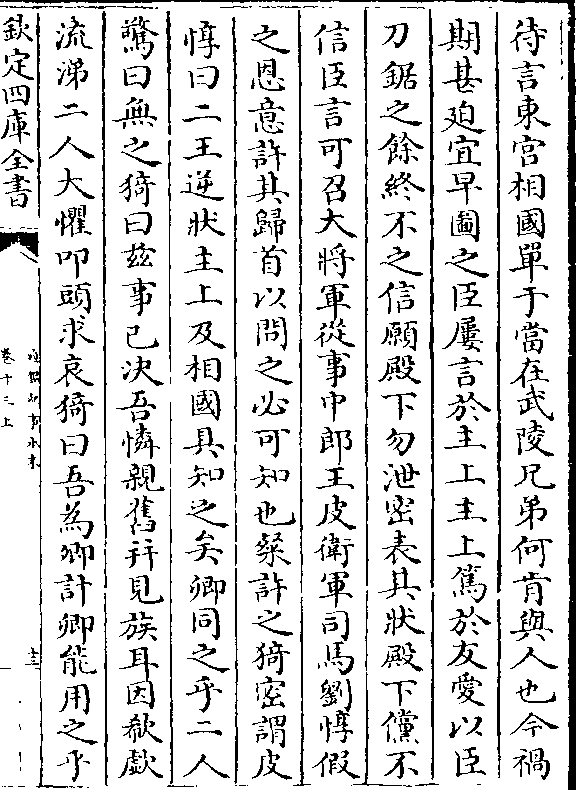 待言東宮相國單于當在武陵兄弟何肯與人也今禍
期甚廹宜早圖之臣屢言於主上主上篤於友愛以臣
刀鋸之餘終不之信願殿下勿泄密表其狀殿下儻不
信臣言可召大將軍從事中郎王皮衛軍司馬劉惇假
之恩意許其歸首以問之必可知也粲許之猗密謂皮
惇曰二王逆狀主上及相國具知之矣卿同之乎二人
驚曰無之猗曰兹事已決吾憐親舊并見族耳因欷歔
流涕二人大懼叩頭求哀猗曰吾為卿計卿能用之乎
欽定四庫全書
通鑑紀事本末
卷十三上